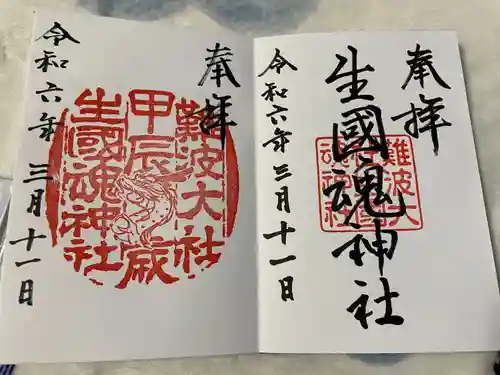 奉拝
生國魂神社
令和六年三月十一日
難波大社
生國魂神社
奉拝
難波大社
甲辰歳
生國魂神社
令和六年三月十一日